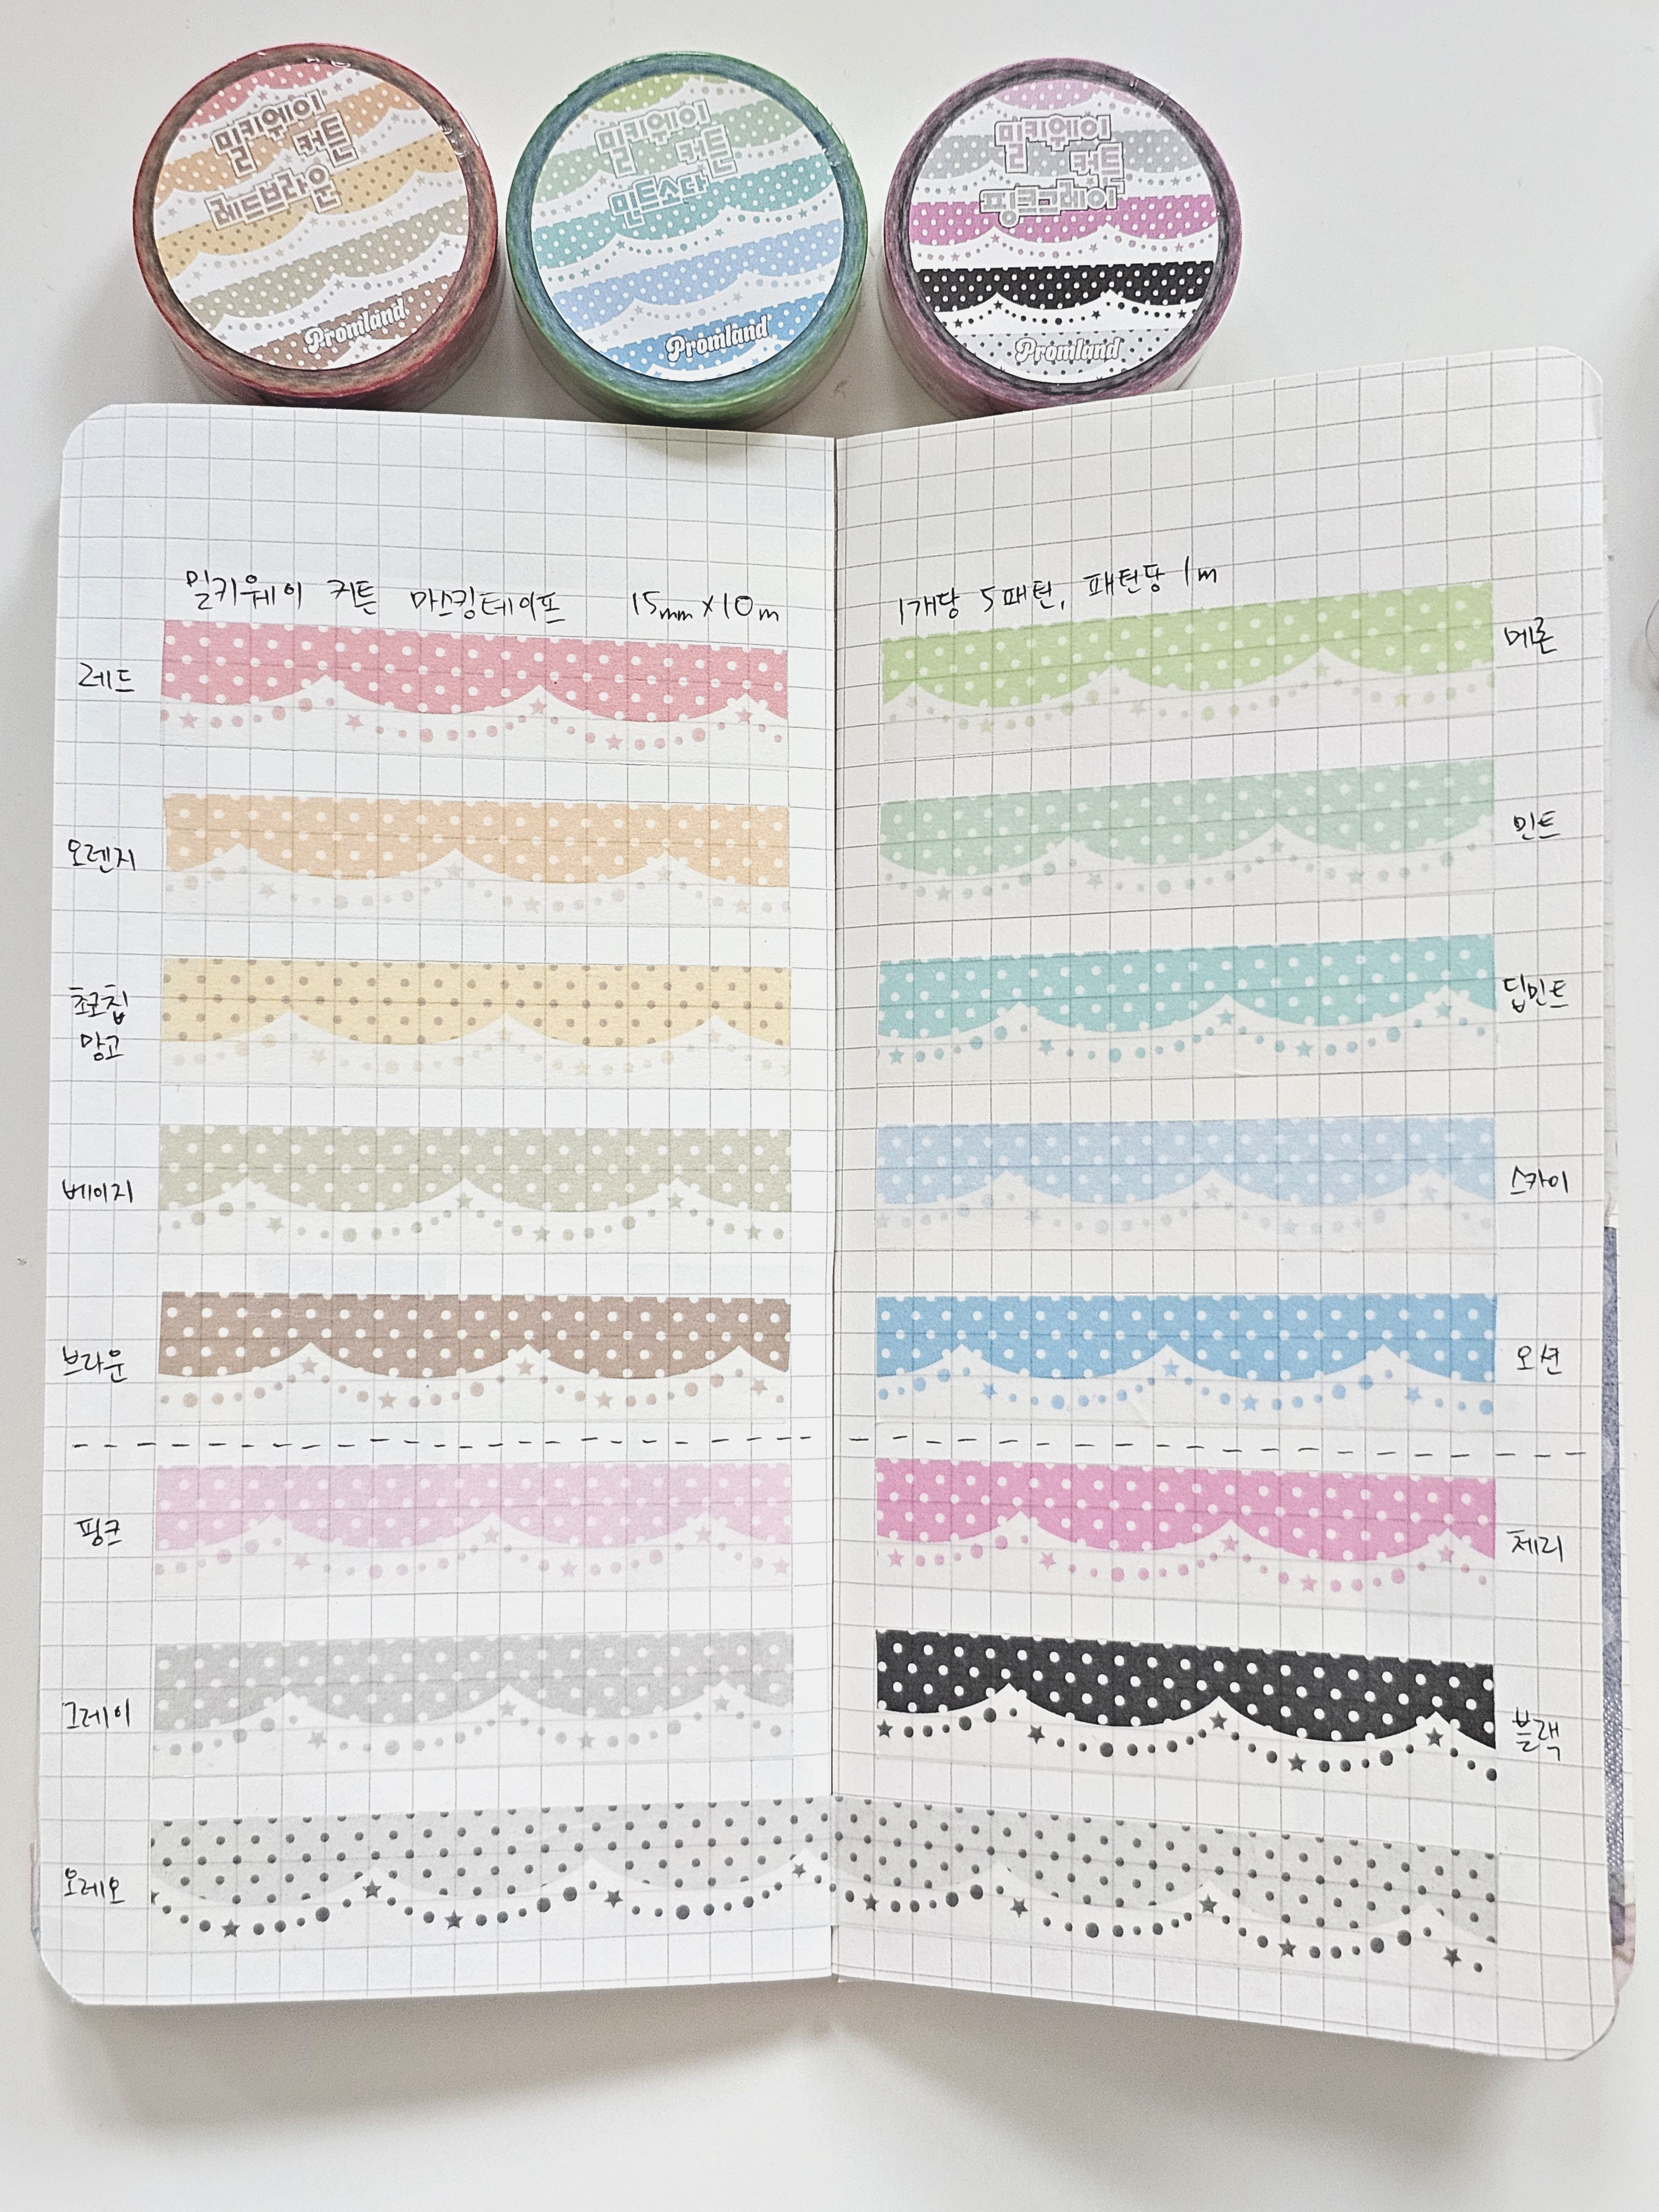 밀키웨이
커튼
레드브라운
Promland
밀키웨이
커튼
민트소다
Promland
밀키웨이
커튼
핑크그레이
Promland
밀키웨이 커튼 마스킹테이프 15mm x 10m
레드
오렌지
초코칩
망고
베이지
브라운
핑크
그레이
오레오
1개당 5패턴, 패턴당 1m
메론
민트
딥민트
스카이
오션
체리
블랙